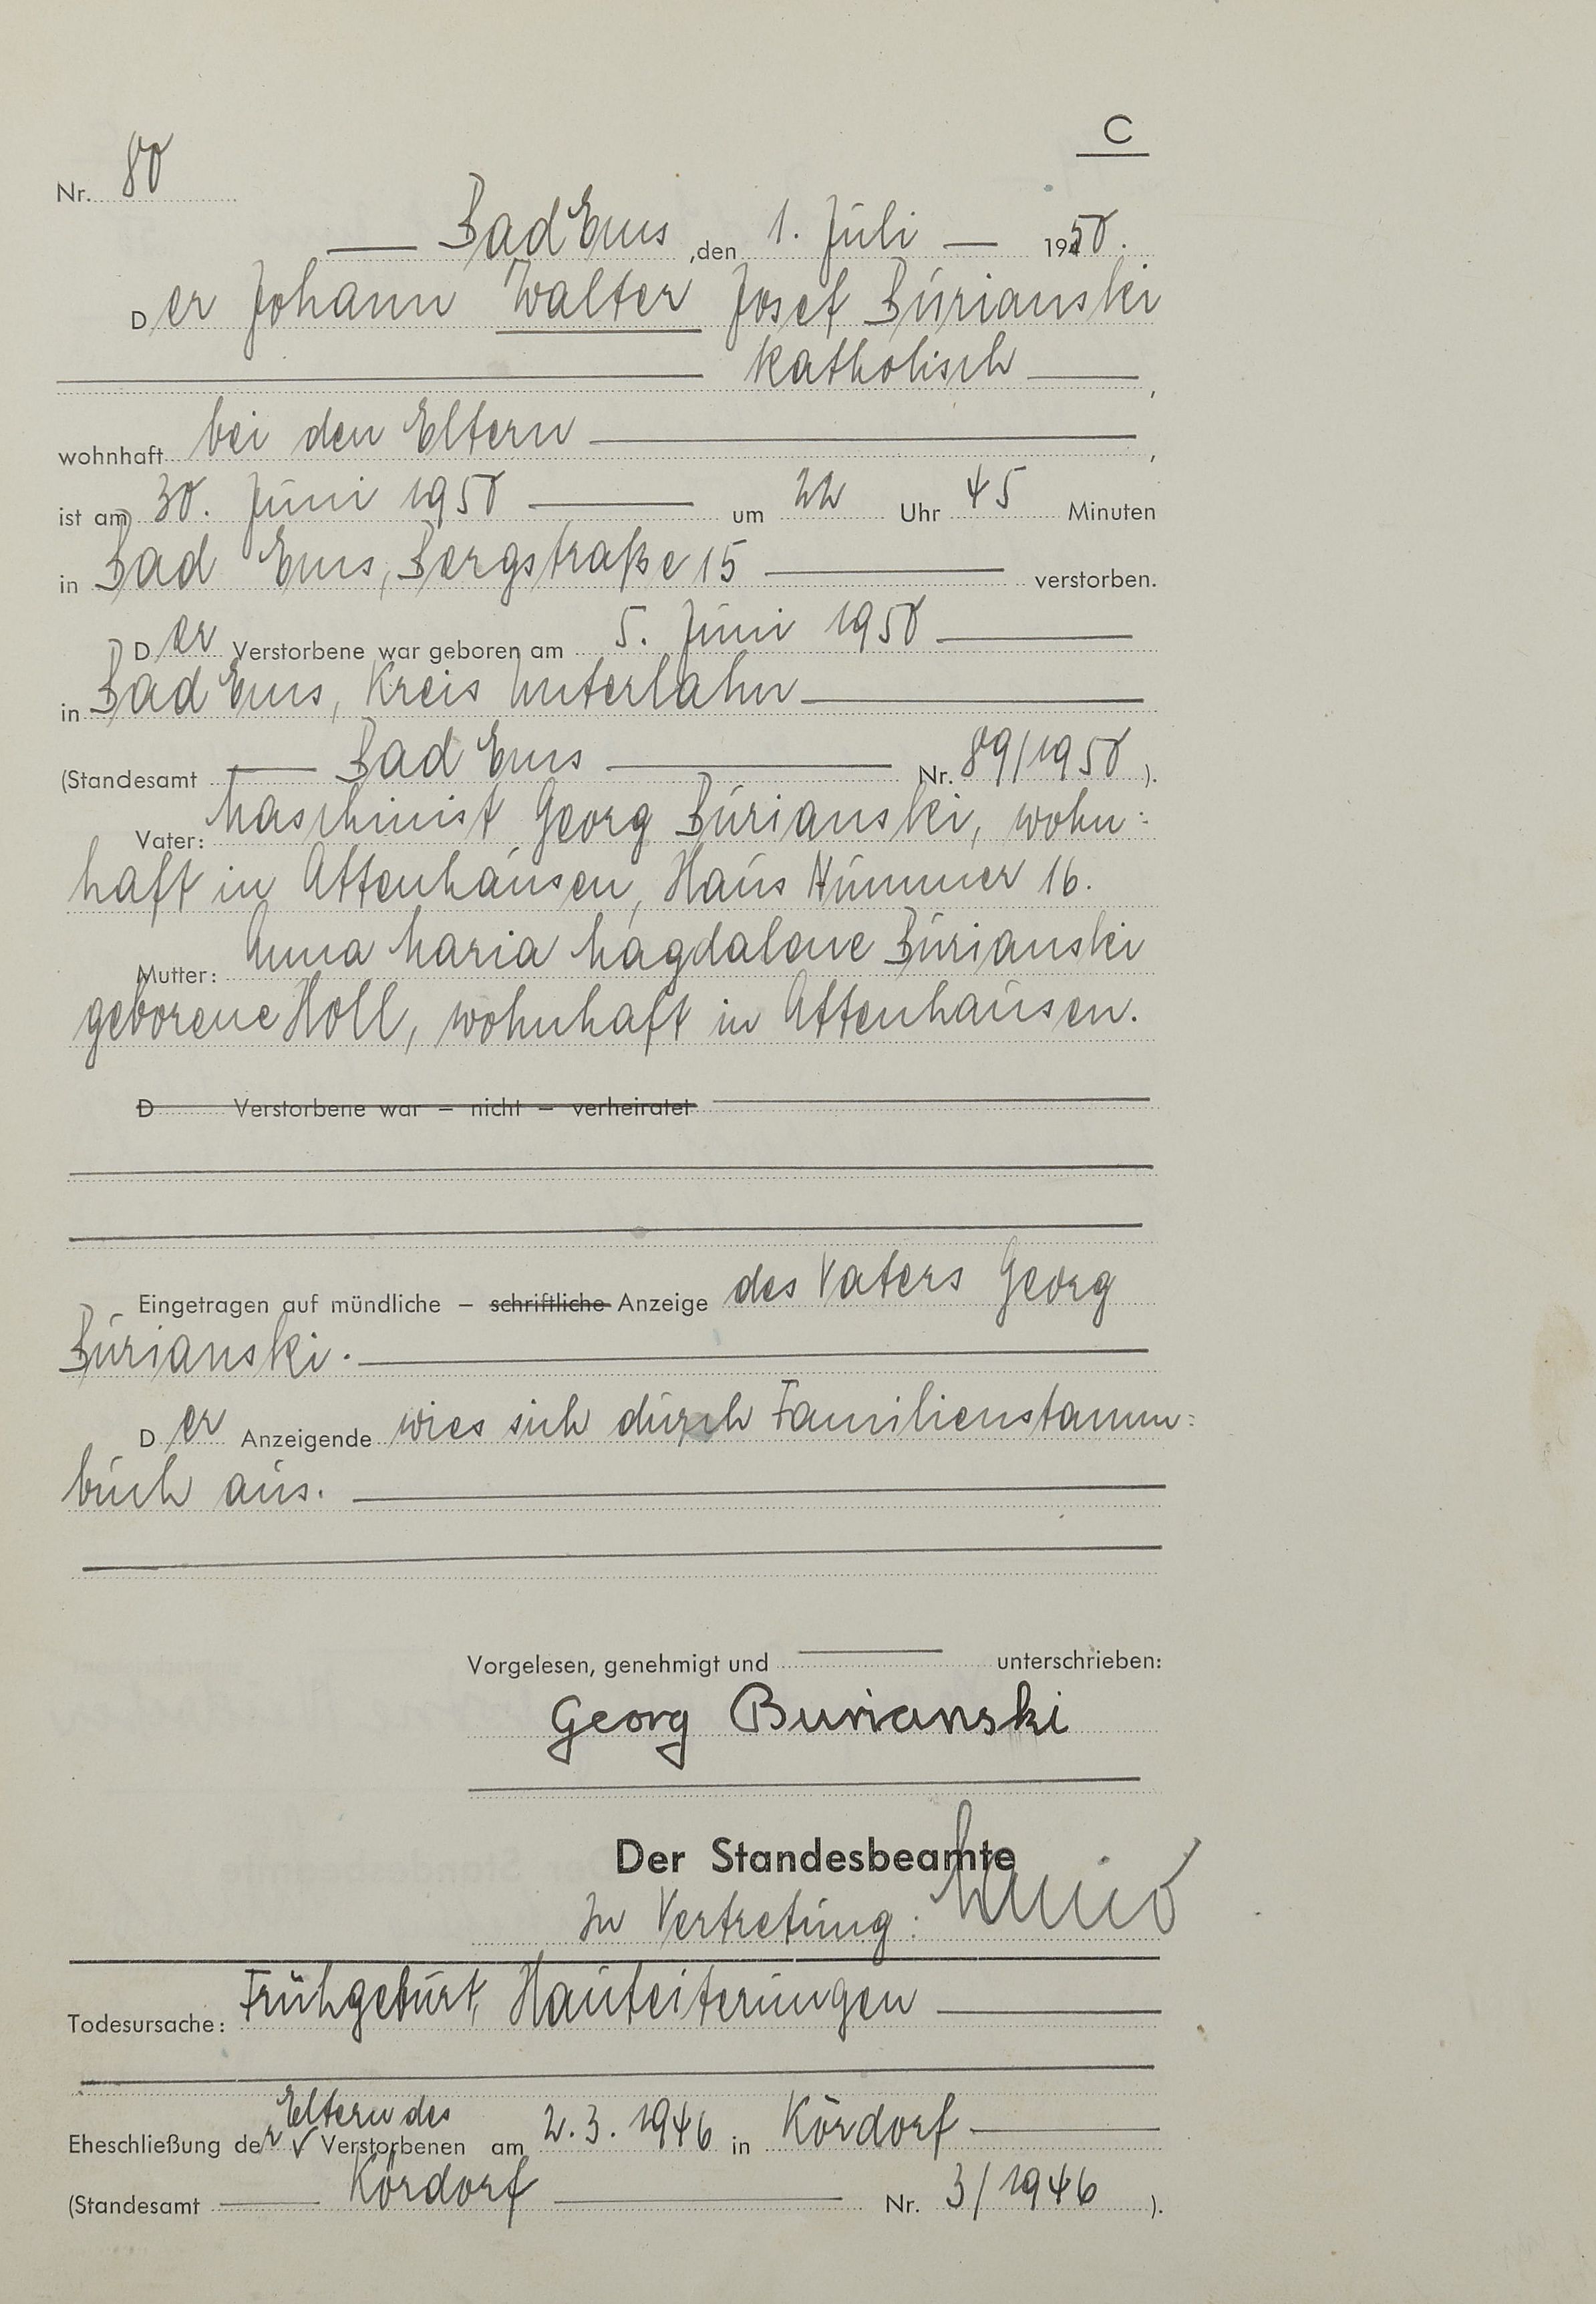 C
Nr. 80
Bad Ems, den 1. Juli 1950.
Der Johann Walter Josef Burianski
katholisch,
wohnhaft bei den Eltern,
ist am 30. Juni 1950 um 22 Uhr 45 Minuten
in Bad Ems, Bergstraße 15 verstorben.
Der Verstorbene war geboren am 5. Juni 1950
in Bad Ems, Kreis Unterlahn
(Standesamt Bad Ems Nr. 89/1950).
Vater: Maschinist Georg Burianski, wohn:
haft in Attenhausen, Haus Nummer 16.
Mutter: Anna Maria Magdalene Burianski
geborene Holl, wohnhaft in Attenhausen.
D Verstorbene war – nicht – verheiratet
Eingetragen auf mündliche – schriftliche Anzeige des Vaters Georg
Burianski.
Der Anzeigende wies sich durch Familienstamm:
buch aus.
Vorgelesen, genehmigt und unterschrieben:
Georg Burianski
Der Standesbeamte
In Vertretung:
Todesursache: Frühgeburt, Hauteiterungen
Eltern des
Eheschließung der √ Verstorbenen am 2.3.1946 in Kördorf
(Standesamt Kördorf Nr. 3/1946).